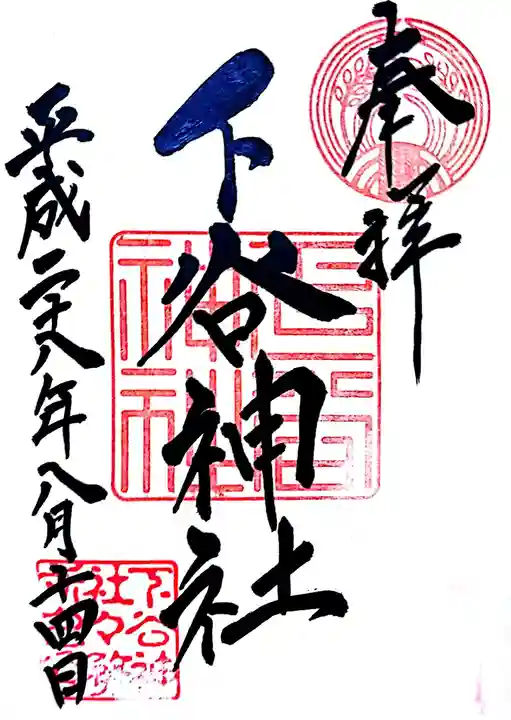 奉拝
下谷神社
平成二十八年八月十四日